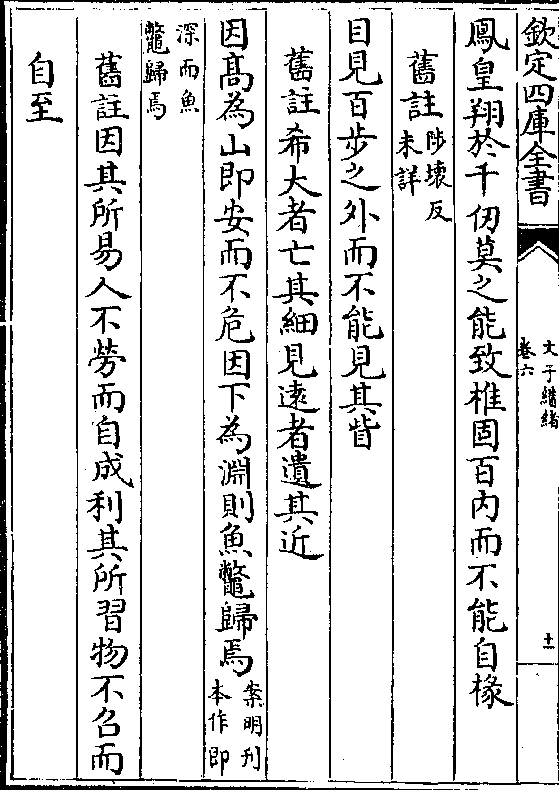 欽定四庫全書
文子纘義
卷六
十一
鳳皇翔於千仞莫之能致椎固百内而不能自椽
舊註陟壞反
未詳
目見百步之外而不能見其眥
舊註希大者亡其細見逺者遺其近
因髙為山即安而不危因下為淵則魚鼈歸焉案明刊
本作即
深而魚
鼈歸焉
舊註因其所易人不勞而自成利其所習物不召而
自至